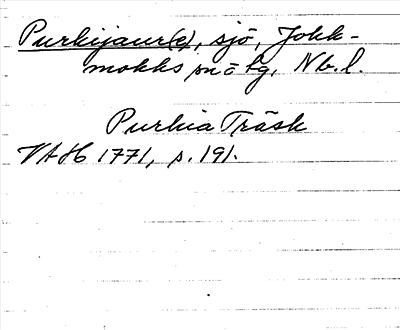 Purkijaur(e), sjö, Jokk-
mokks sn o lg, Nb. l.
Purkia Träsk
VAH 1771, s. 191.